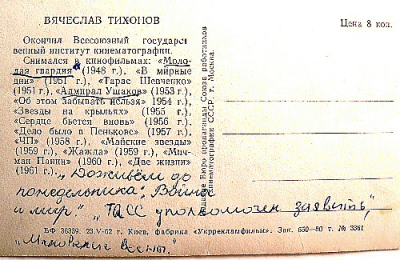 ВЯЧЕСЛАВ ТИХОНОВ
Окончил Всесоюзный государст
венный институт кинематографии.
Снимался в кинофильмах: «Моло-
дая гвардия» (1948 г.), «В мирные
дни» (1951 г.), «Тарас Шевченко»
(1951 г.), «Адмирал Ушаков» (1953 г.),
«Об этом забывать нельзя» 1954 г.),
«Звезды на крыльях» (1955 г.),
«Сердце бьется вновь» (1956 г.),
«Дело было в Пенькове» (1957 г.),
«ЧП» (1958 г.), «Майские звезды»
(1959 г.), «Жажда» (1959 г.), «Мич-
ман Панин» (1960 г.), «Две жизни»
(1961 г.).
„Доживём до
понедельника", Война
и мир." „ТАСС уполномочен заявить,"
БФ 36339. 23.V-62 г. Киев, фабрика «Укррекламфильм». Зак. 650—80 т. № 3361
весны".
Цена 8 коп.
Бюро пропаганды Союза работников
кинематографии СССР, г. Москва.